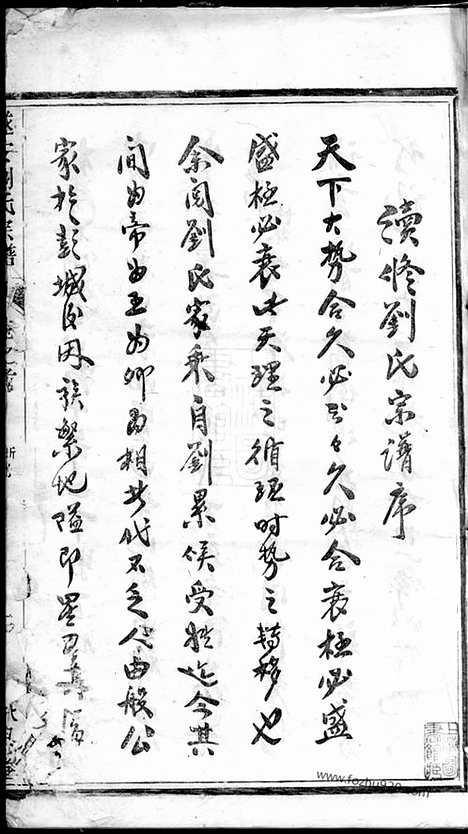 續修劉氏宗譜序
天下大勢合久必分分久必合衰極必盛
盛極必衰此天理之循環時勢之轉移也
余閱劉氏家乘自劉累候受姓迄今其
間為帝為王為卿為相者代不乏人由般公
家於彭城後因族繁地隘即星
劉氏宗譜
www.fozhu920.com